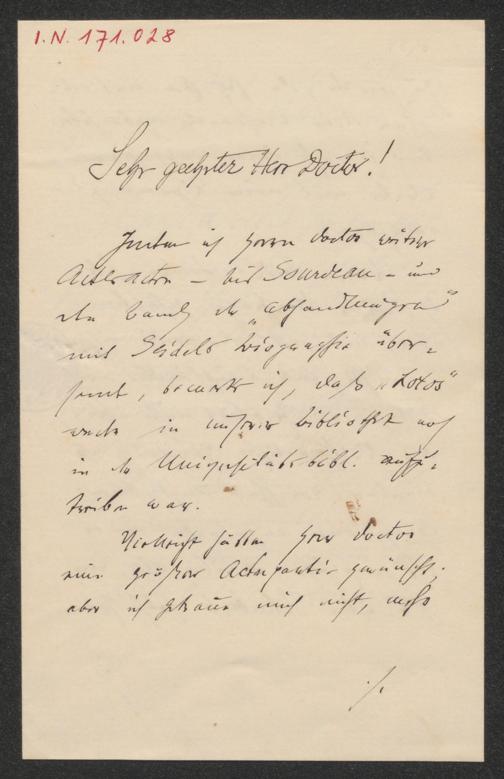 I.N. 171.028
Sehr geehrter Herr Doctor!
Indem ich Herrn Doctor weitere
Acten – bis Sourdeau – und
den Band der „Abhandlungen"
mit Seidels Biographie über-
sende, bemerke ich, daß „Lotos"
weder in unserer Bibliothek noch
in der Universitätsbibl. aufzu-
treiben war.
Vielleicht hätten Herr Doctor
eine größere Actenpartie gewünscht;
aber ich getraue mich nicht, mehr
./.